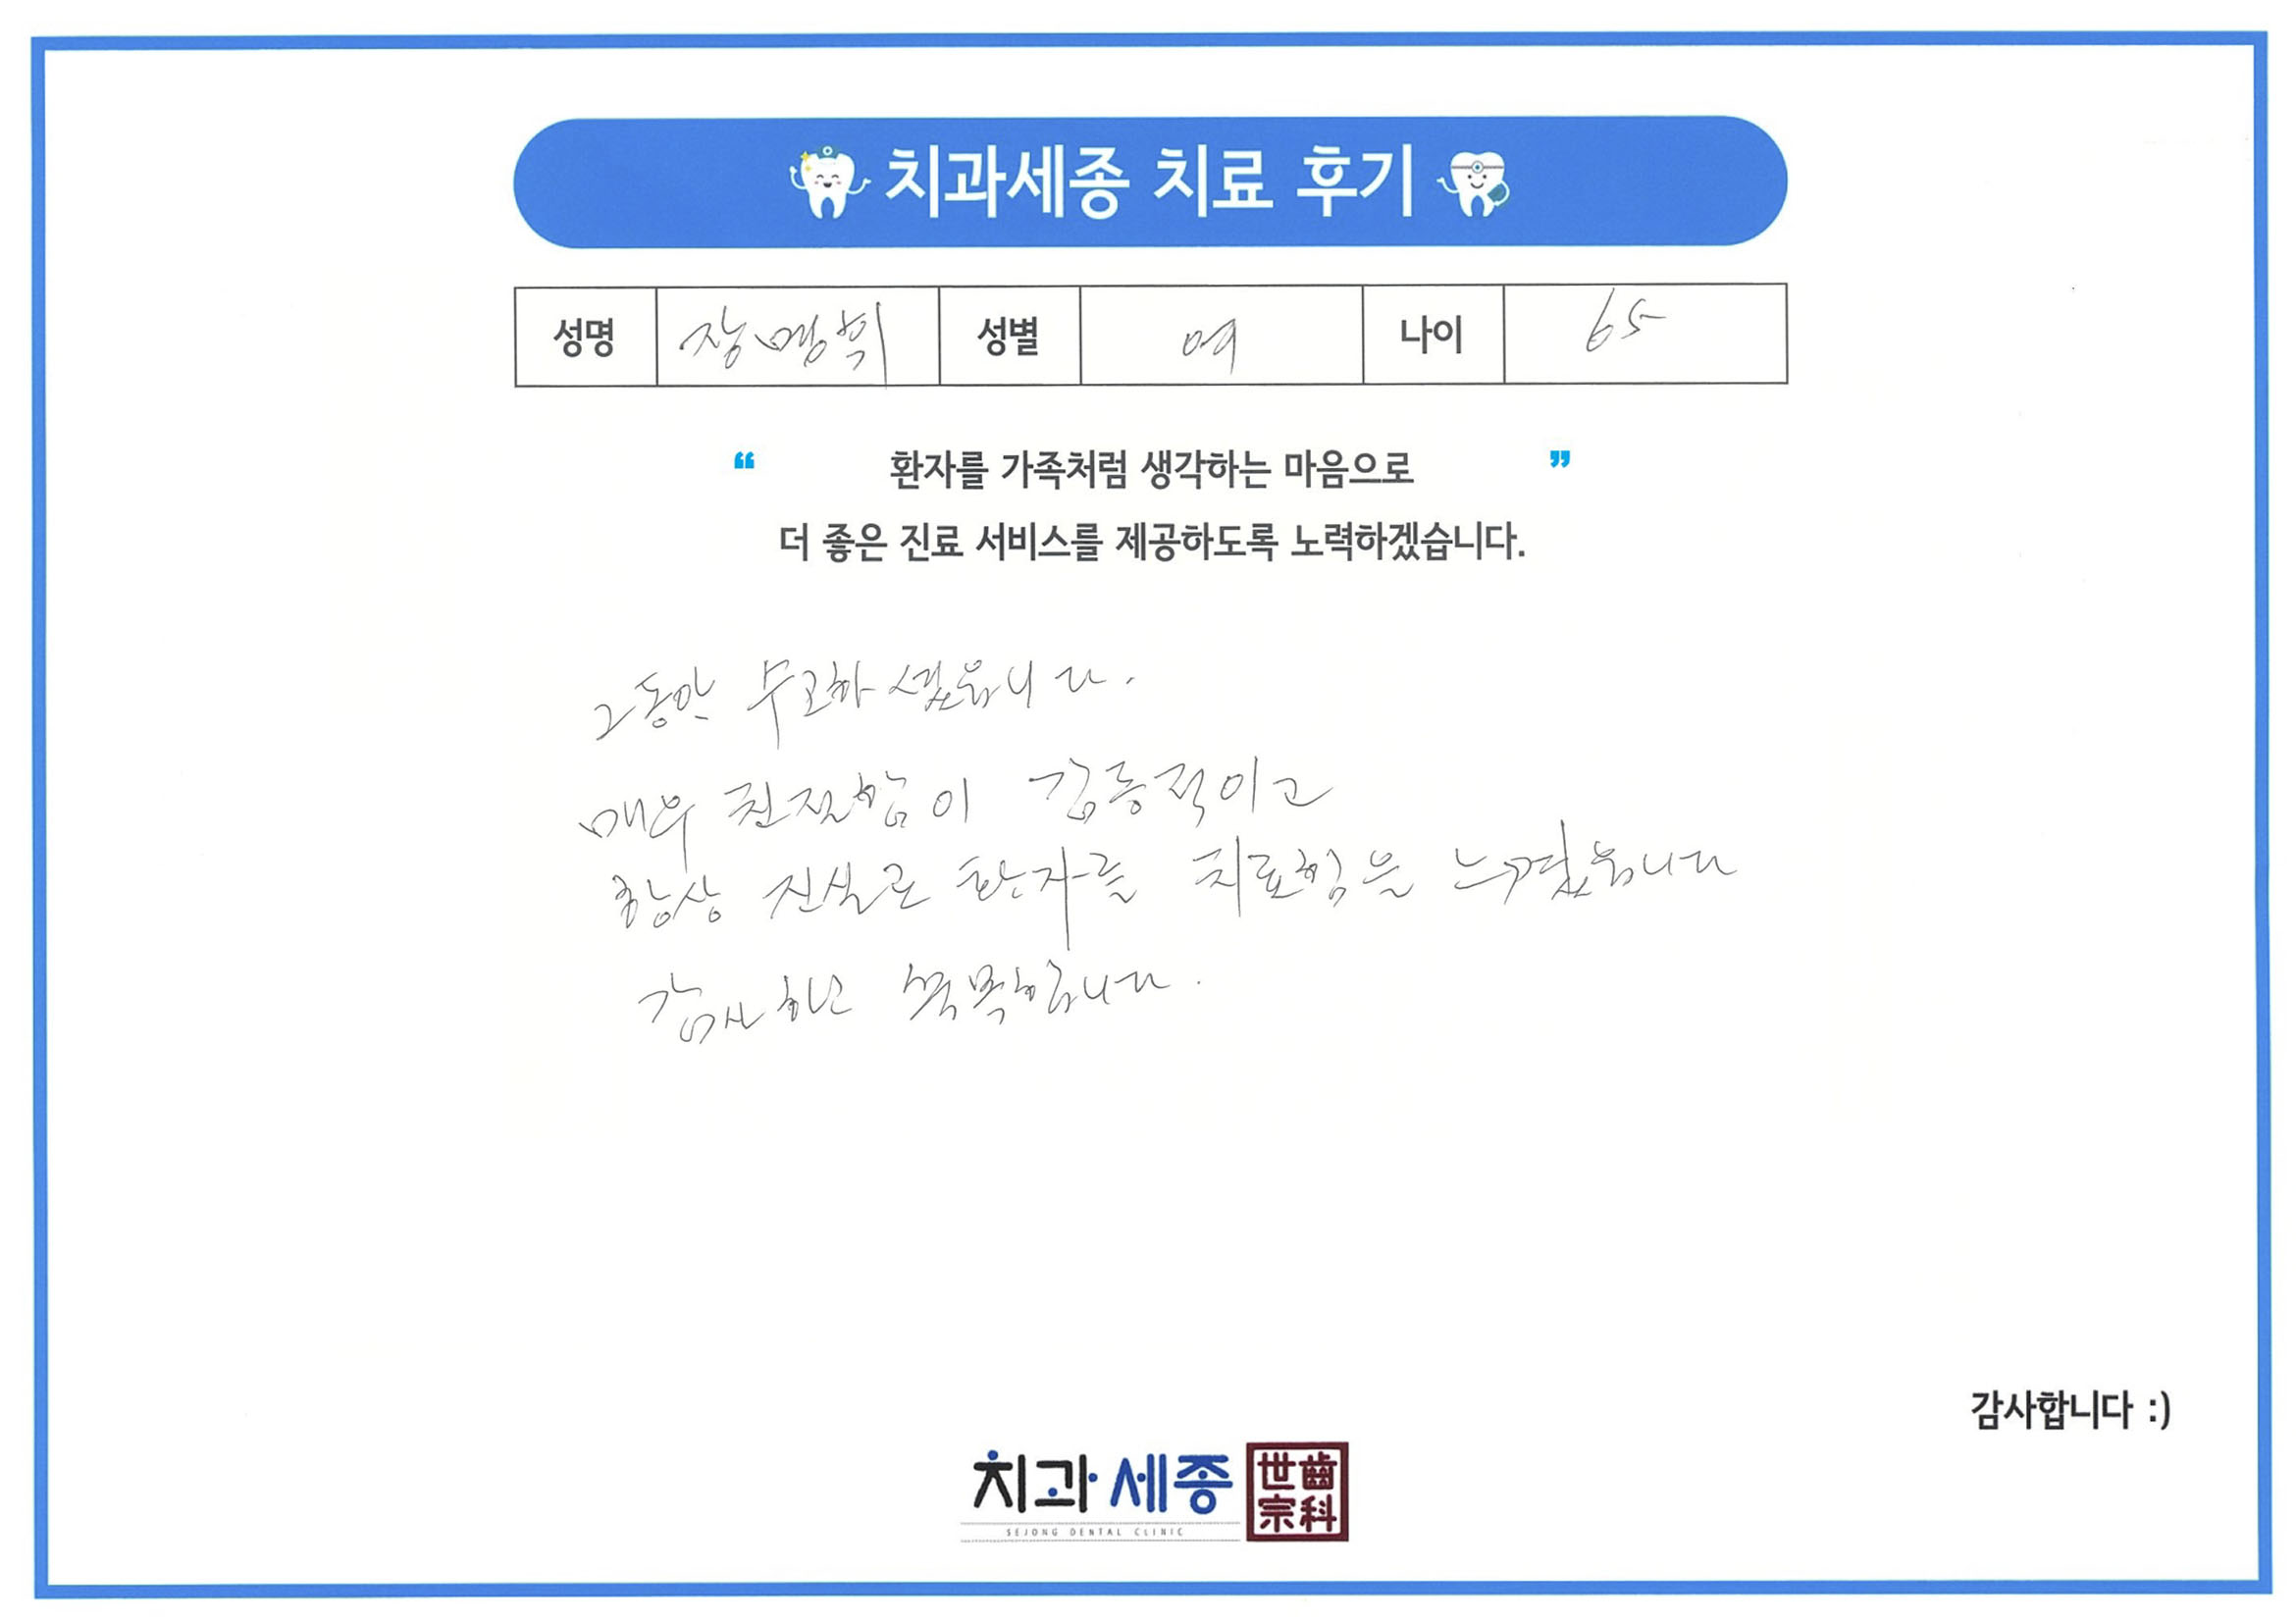 치과세종 치료 후기
성명 장명휘 성별 여 나이 65
“ 환자를 가족처럼 생각하는 마음으로 ”
더 좋은 진료 서비스를 제공하도록 노력하겠습니다.
그동안 수고하셨읍니다.
매우 친절함이 감동적이고
항상 진실로 환자를 치료함을 느꼈읍니다
감사하고 축복합니다.
감사합니다 :)
치과세종 世齒
宗科
SEJONG DENTAL CLINIC